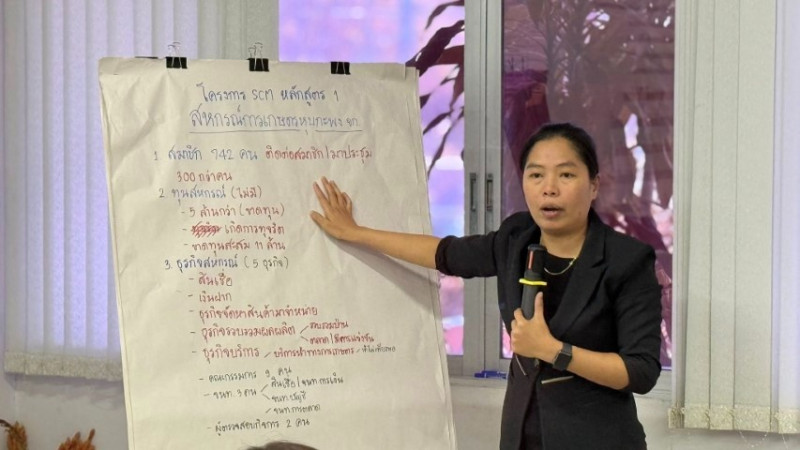 โครงการ SCM หลักสูตร 1
สหกรณ์การเกษตรหุบกะพง จก.
1. สมาชิก 742 คน ติดต่อสมาชิก/มาประชุม
300 กว่าคน
2. ทุนสหกรณ์ (ไม่มี)
- 5 ล้านกว่า (ขาดทุน)
- เกิดการทุจริต
- ขาดทุนสะสม 11 ล้าน
3. ธุรกิจสหกรณ์ (5 ธุรกิจ)
- สินเชื่อ
- เงินฝาก
- ธุรกิจจัดหาสินค้ามาจำหน่าย
- ธุรกิจรวบรวมผลผลิต
- ธุรกิจบริการ - บริการ
- คณะกรรมการ 9 คน
- จนท. 3 คน สินเชื่อ / จนท. การเงิน
จนท. บัญชี
จนท. การตลาด
- ผู้ตรวจสอบกิจการ 2 คน